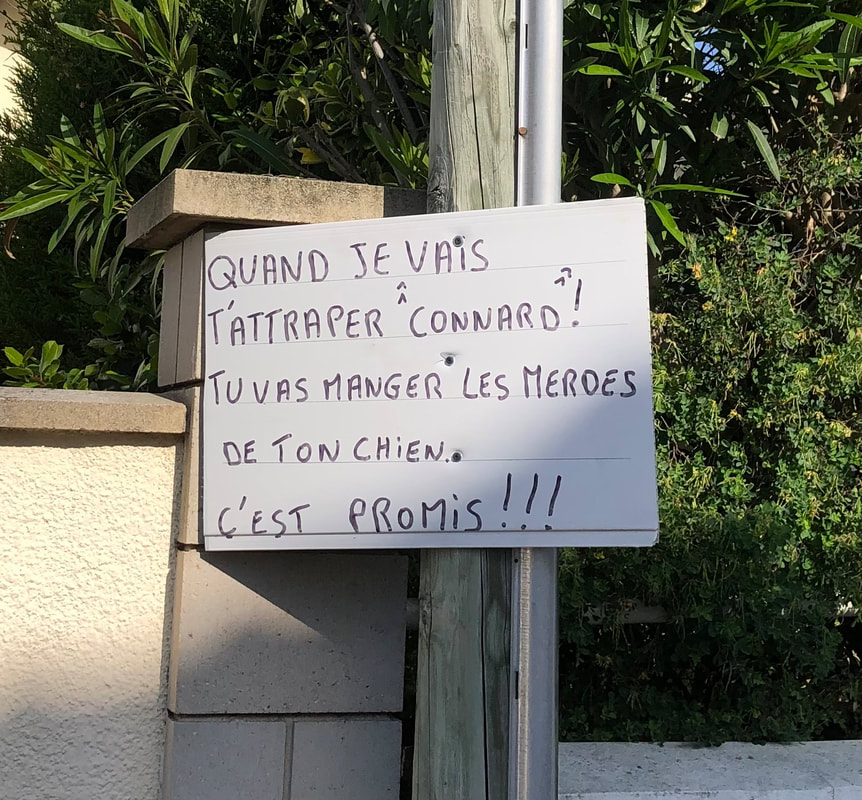 QUAND JE VAIS
T'ATTRAPER CONNARD !
TU VAS MANGER LES MERDES
DE TON CHIEN.
C'EST PROMIS !!!